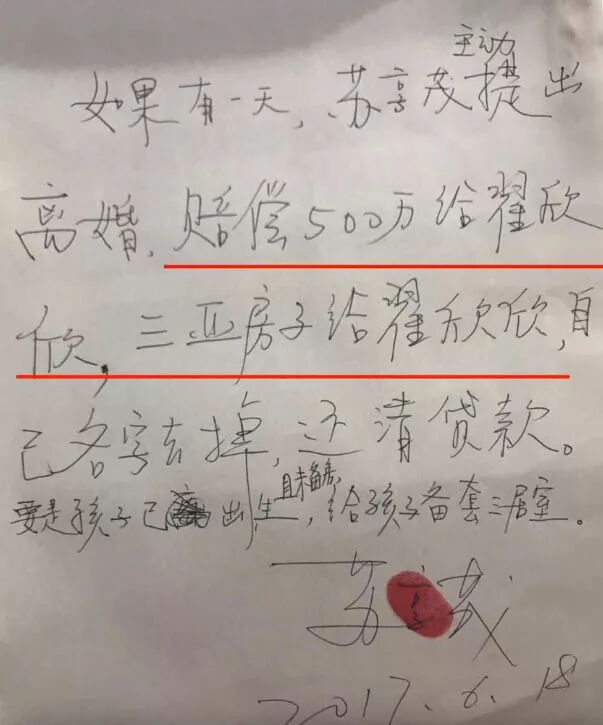 主动
如果有一天,苏享茂提出
离婚,赔偿500万给翟欣
欣,三亚房子给翟欣欣,自
己名字去掉,还清贷款。
且未备房,
要是孩子已出生,给孩子备套三居室。
苏享茂
2017.6.18